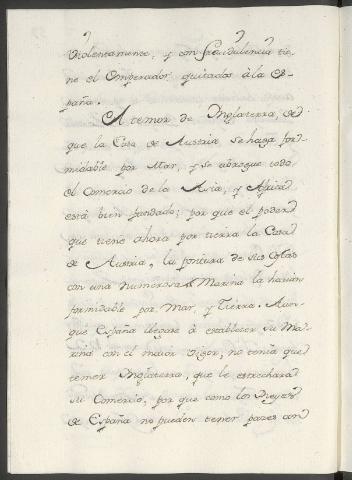 violentamente, y con fraudulencia tie-
ne el Emperador quitados à la Es-
paña.
A temor de Inglaterra, de
que la Casa de Austria se haga for-
midable por Mar, y se abrogue todo
el Comercio de la Asia, y Africa
está bien fundado; por que el poder
que tiene ahora por tierra la Casa
de Austria, la postura de sus costas
con una numerosa Marina la harian
formidable por Mar, y Tierra. Aun-
que España llegase à establecer su Ma-
rina con el maior vigor, no tenia que
temer Inglaterra, que le estrechara
su Comercio, por que como los Reyes
de España no pueden tener pazes con